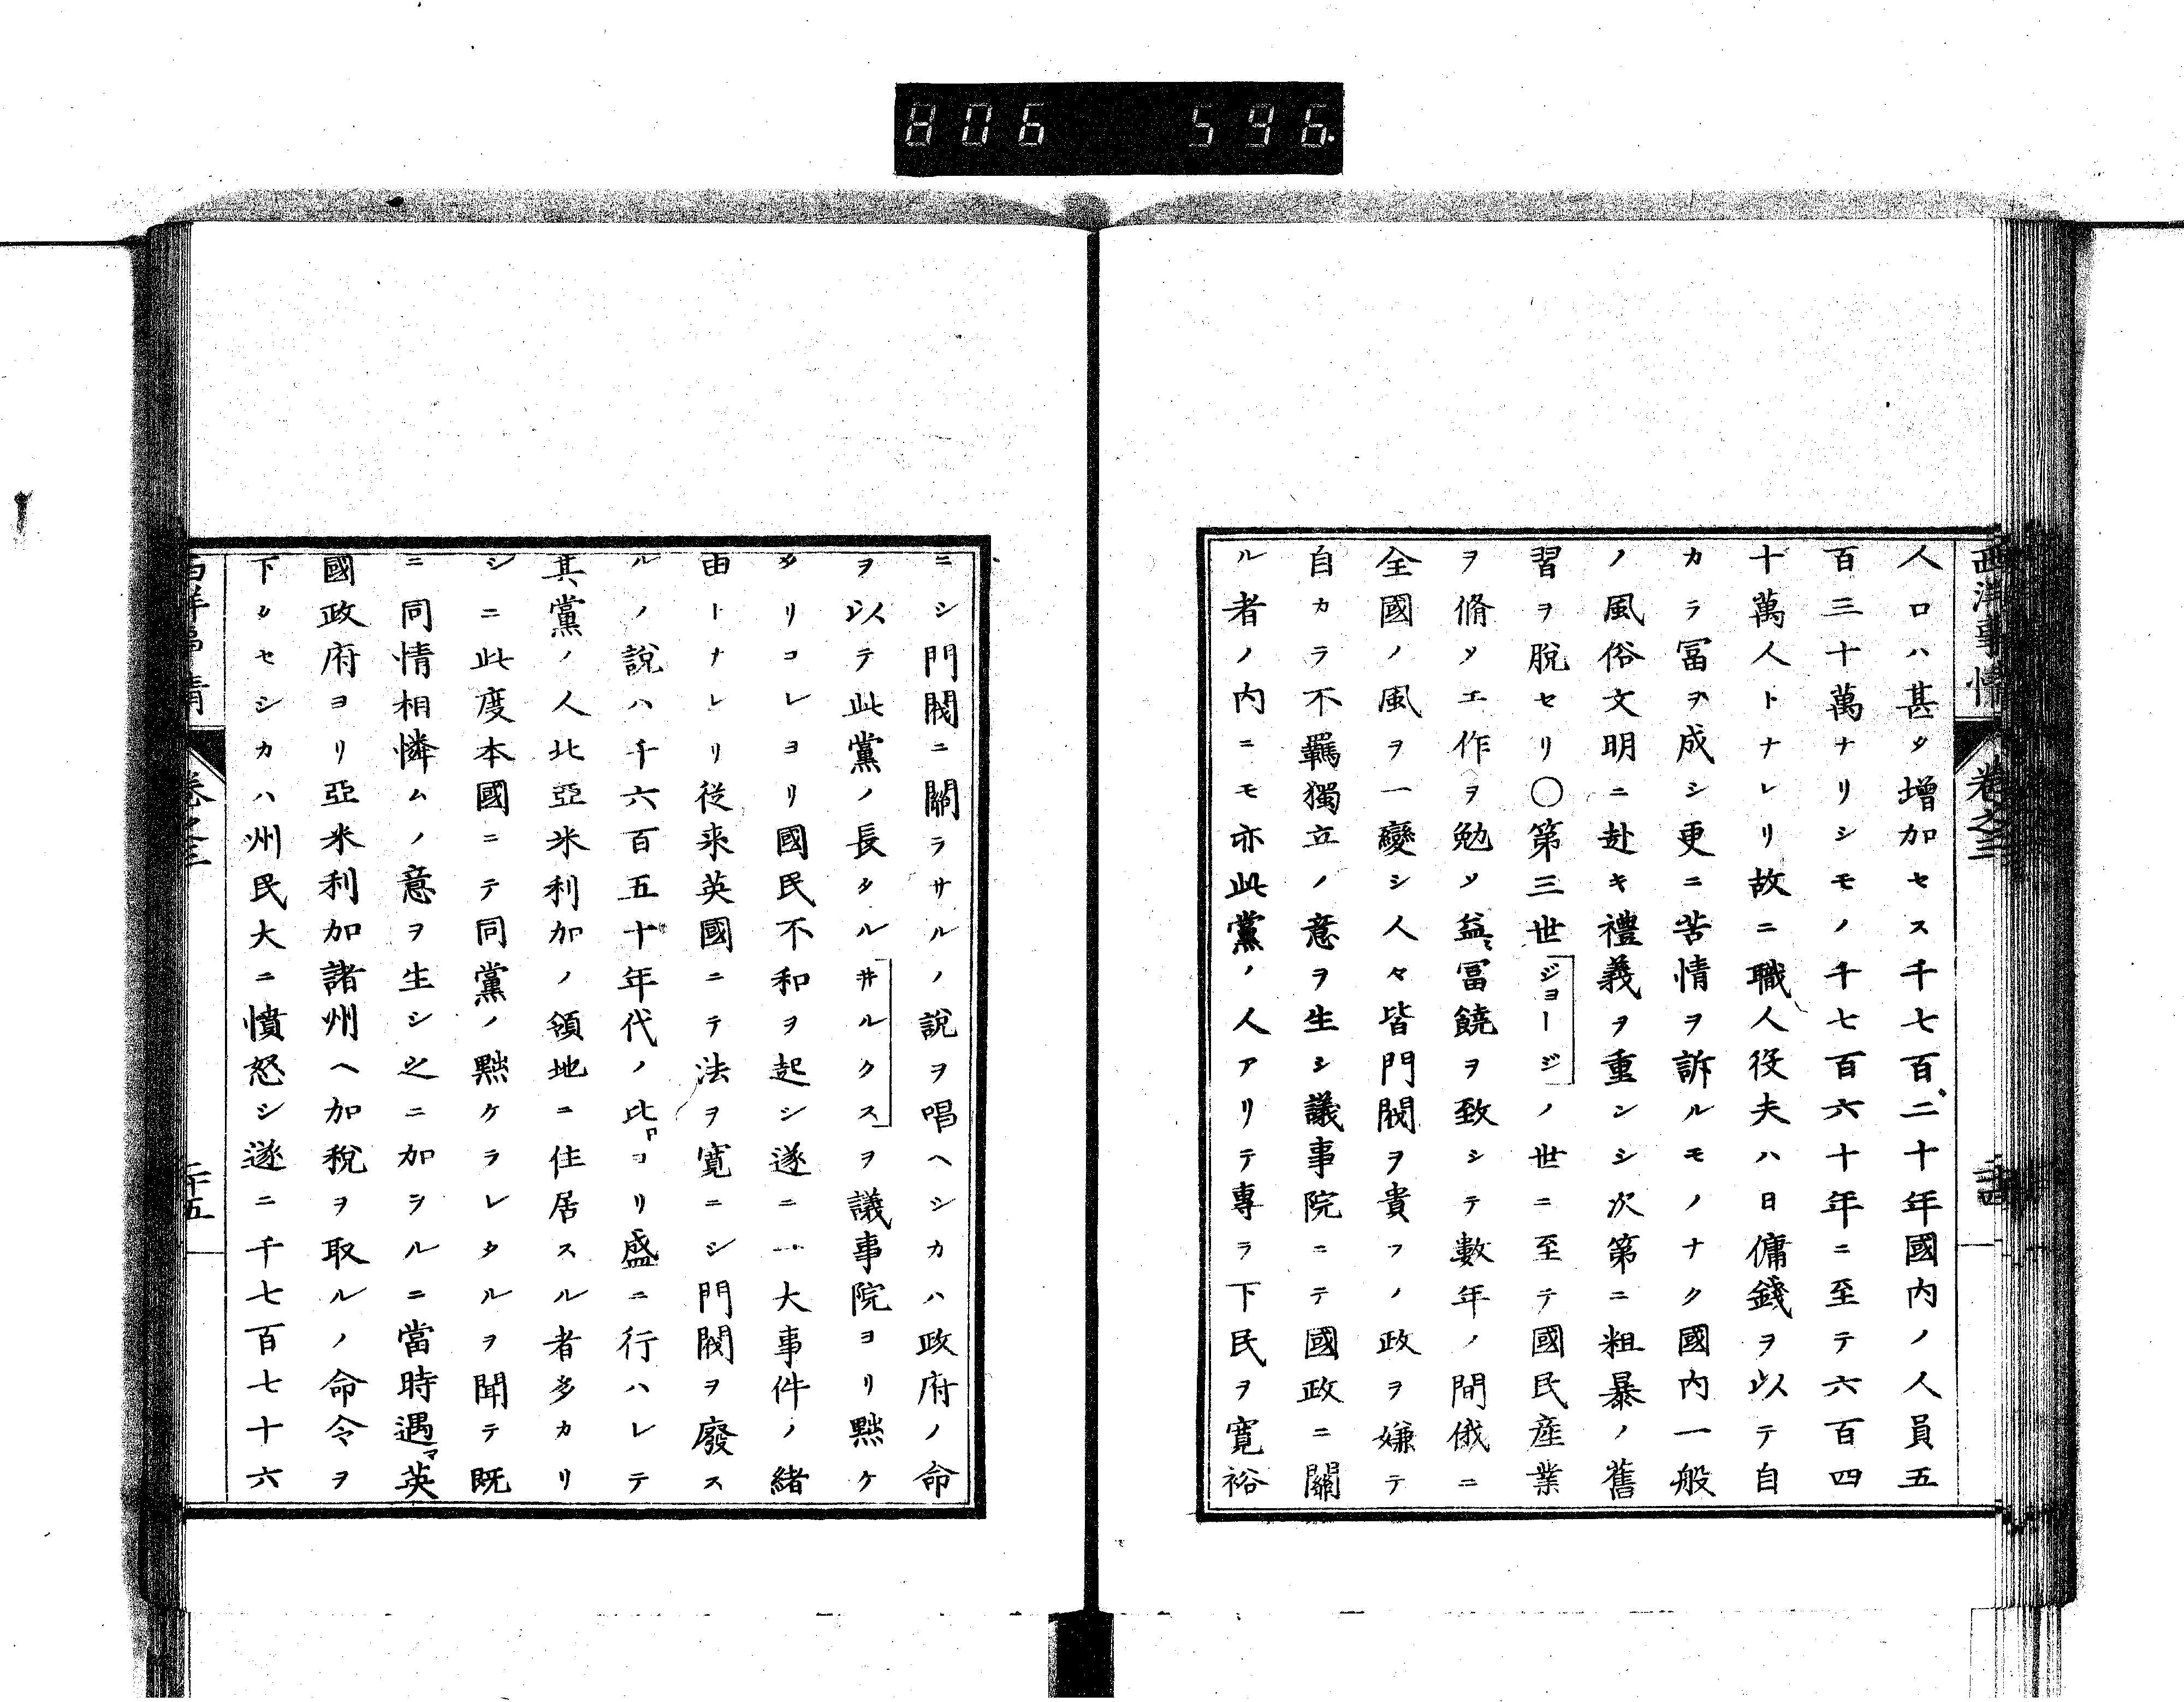 806 596.
西洋事情 卷之三
人口ハ甚タ增加セス千七百二十年國内ノ人員五
百三十萬ナリシモノ千七百六十年ニ至テ六百四
十萬人トナレリ故ニ職人役夫ハ日傭錢ヲ以テ自
カラ冨ヲ成シ更ニ苦情ヲ訴ルモノナク國内一般
ノ風俗文明ニ赴キ禮義ヲ重ンシ次第ニ粗暴ノ舊
習ヲ脫セリ〇第三世ジョージノ世ニ至テ國民產業
ヲ脩メ工作ヲ勉メ益冨饒ヲ致シテ數年ノ間俄ニ
全國ノ風ヲ一變シ人々皆門閥ヲ貴フノ政ヲ嫌テ
自カラ不羈獨立ノ意ヲ生シ議事院ニテ國政ニ關
ル者ノ内ニモ亦此黨ノ人アリテ專ラ下民ヲ寬裕
ニシ門閥ニ關ラサルノ說ヲ唱ヘシカハ政府ノ命
ヲ以テ此黨ノ長タル井ルクスヲ議事院ヨリ黜ケ
タリコレヨリ國民不和ヲ起シ遂ニ一大事件ノ緒
由トナレリ從來英國ニテ法ヲ寬ニシ門閥ヲ廢ス
ルノ說ハ千六百五十年代ノ比ヨリ盛ニ行ハレテ
其黨ノ人北亞米利加ノ領地ニ住居スル者多カリ
シニ此度本國ニテ同黨ノ黜ケラレタルヲ聞テ既
ニ同情相憐ムノ意ヲ生シ之ニ加ヲルニ當時遇マ英
國政府ヨリ亞米利加諸州ヘ加稅ヲ取ルノ命令ヲ
下タセシカハ州民大ニ憤怒シ遂ニ千七百七十六
西洋事情 卷之三 二十五